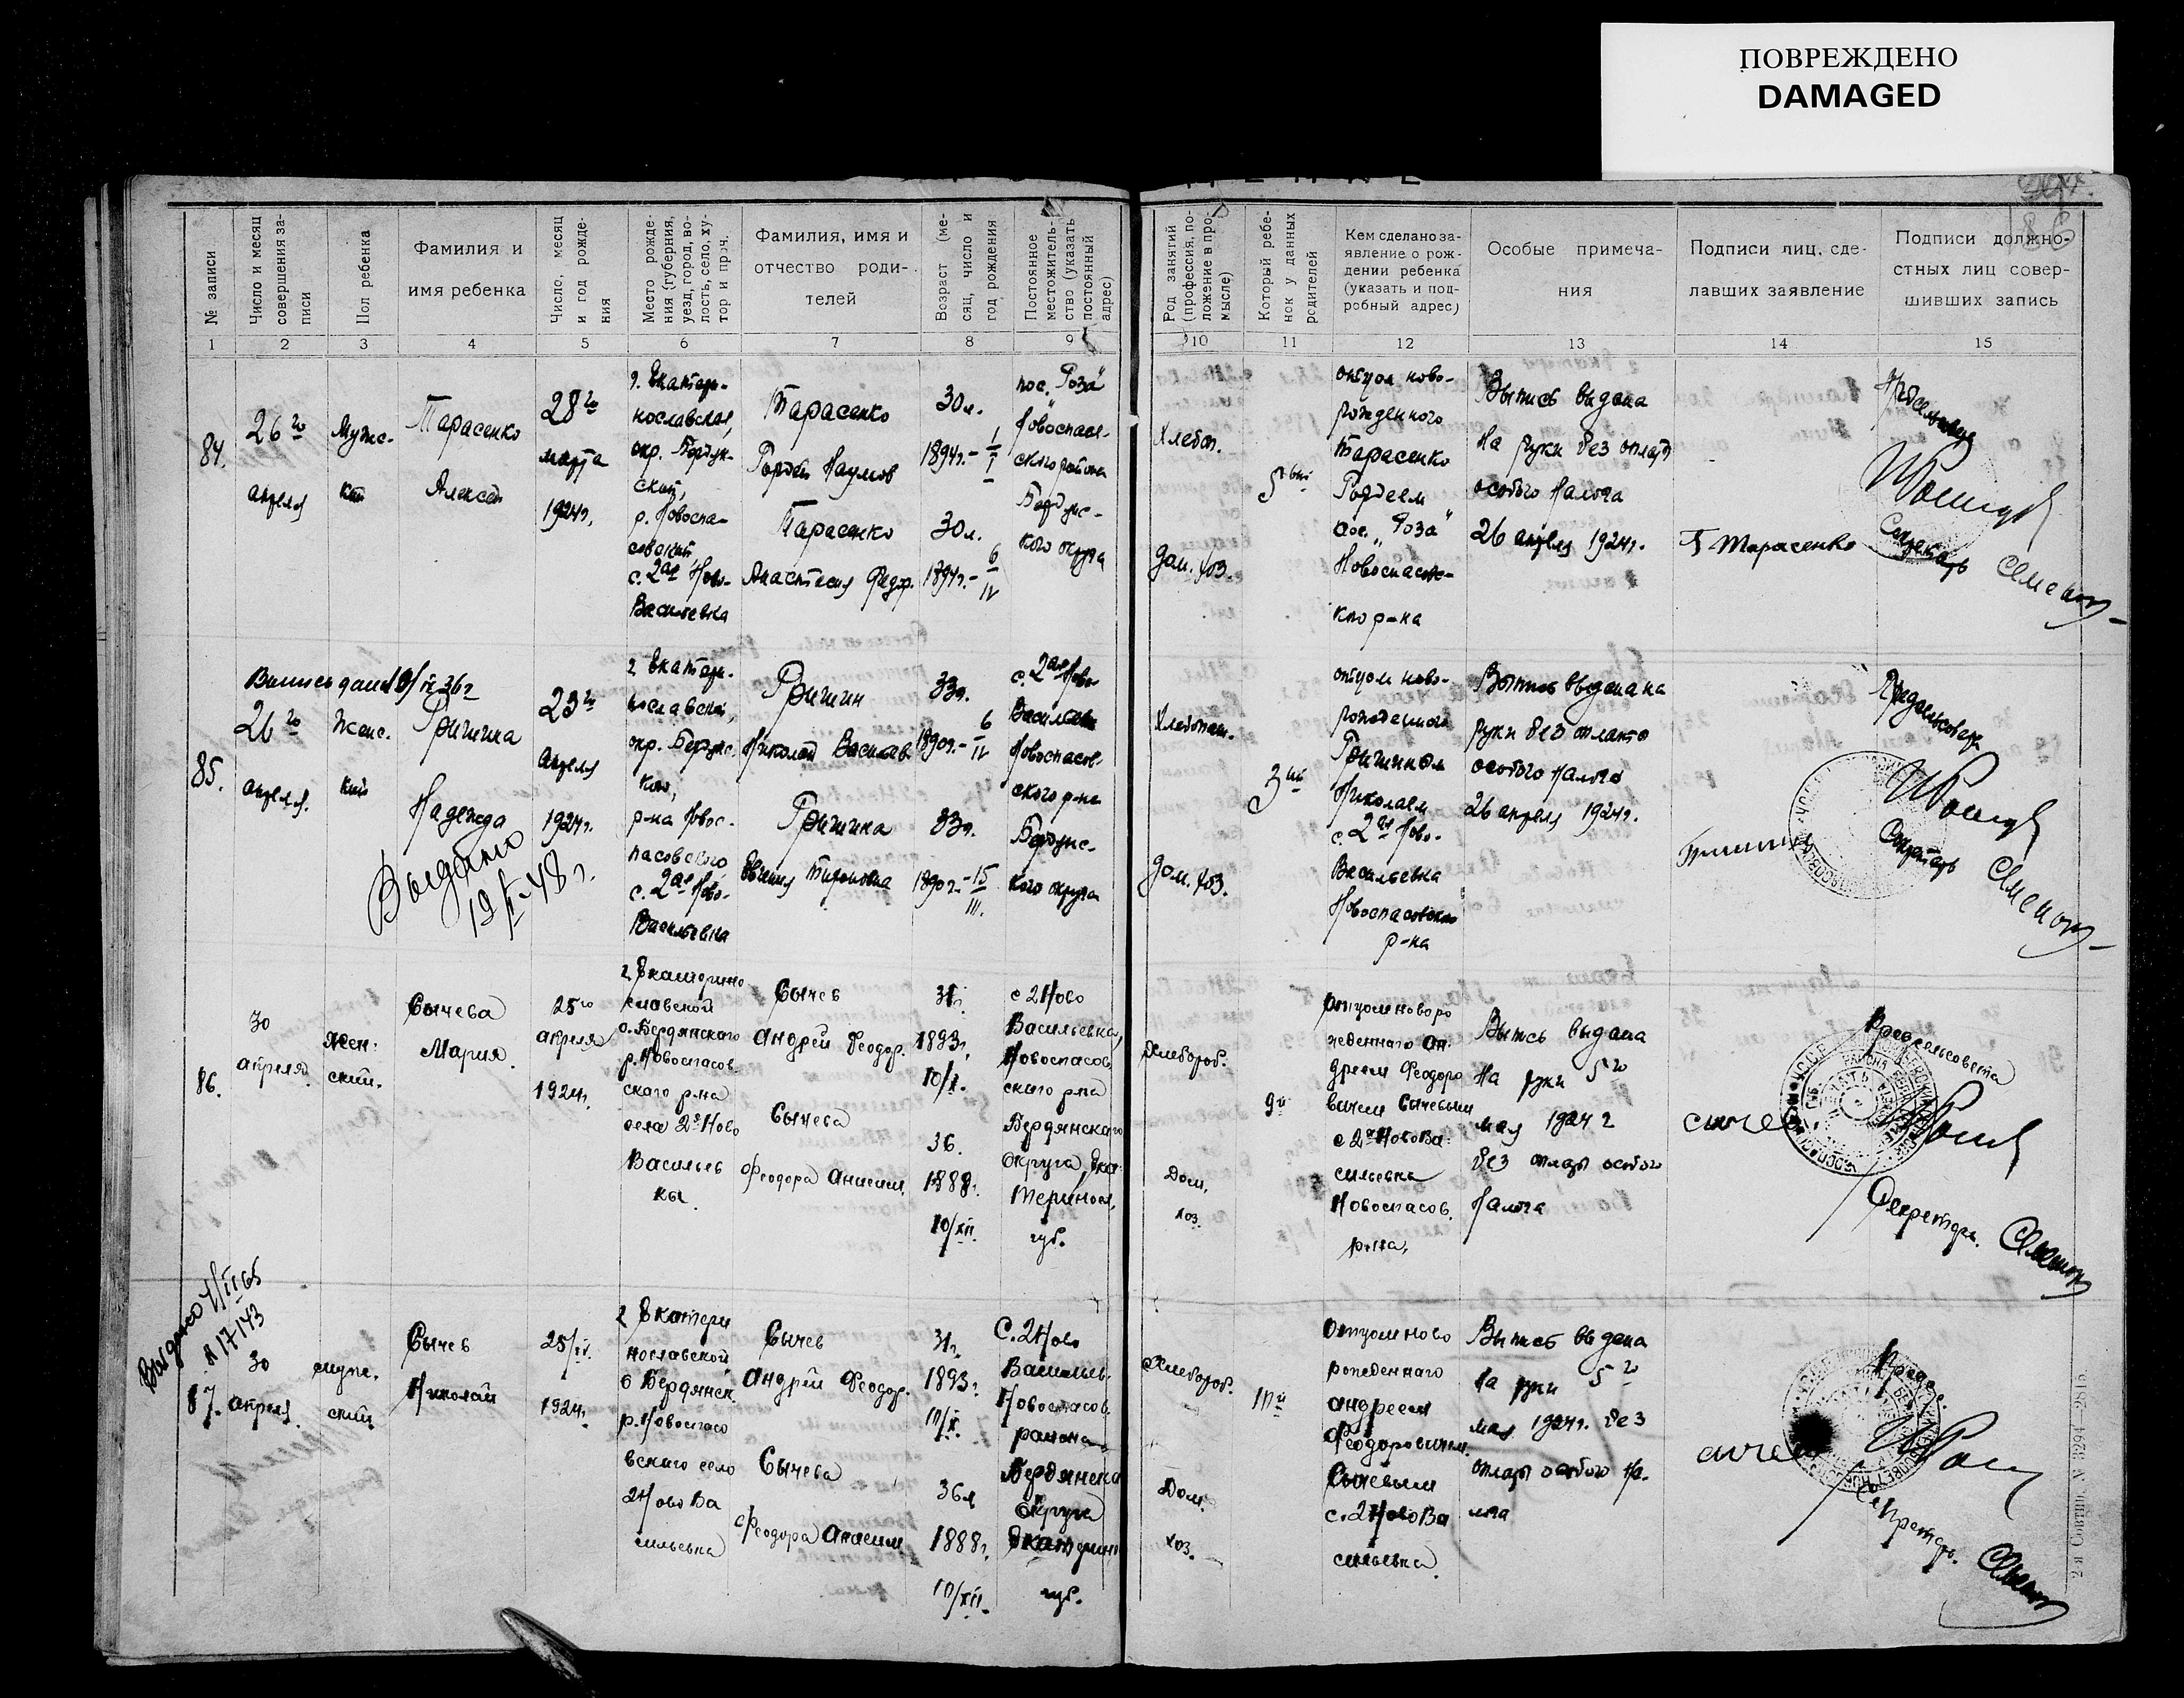 ПОВРЕЖДЕНО
DAMAGED
№ записи
Число и месяц
совершения за-
писи
Пол ребенка
Фамилия и
имя ребенка
Число, месяц
и год рожде-
ния
Место рожде-
ния (губерния,
уезд, город, во-
лость, село, ху-
тор и проч.
Фамилия, имя и
отчество роди-
телей
Возраст (ме-
сяц, число и
год рождения
Постоянное
местожитель-
ство (указать
постоянный
адрес)
Род занятий
(профессия, по-
ложение в про-
мысле)
Который ребе-
нок у данных
родителей
Кем сделано за-
явление о рож-
дении ребенка
(указать и под-
робный адрес)
Особые примеча-
ния
Подписи лиц, сде-
лавших заявление
Подписи должно-
стных лиц совер-
шивших запись
1 2 3 4 5 6 7 8 9 10 11 12 13 14 15
84.
26го
апреля
Мужс-
кий
Тарасенко
Алексей
28го
марта
1924г.
г. Екатери-
нославская,
окр. Бердян-
ский,
р. Новоспа-
совский
с. 2ая Ново-
Васильевка
Тарасенко
Гордей Наумов
Тарасенко
Анастасия Федор.
30л.
1894г.- I/I
30л.
1894г.- 6/IV
пос. "Роза"
Новоспасов-
ского района
Бердянс-
кого округа
Хлебоп.
Дом. хоз.
5тый
отцом ново-
рожденного
Тарасенко
Гордеем
пос. "Роза"
Новоспасовс-
кого р-на
Выпись выдана
на руки без оплаты
особого налога
26 апреля 1924г.
Г Тарасенко
Секретарь
85.
Выпись дана
26го
апреля.
Женс-
кий
Гришина
Надежда
Выдано
19 48 г.
23го
Апреля
1924г.
г. Екатери-
нославской,
окр. Бердянс-
кого,
р-на Новос-
пасовского
с. 2ая Ново-
Васильевка
Гришин
Николай Васильев.
Гришина
Евгения
33г.
1890г.- 6/IV
33г.
1890г.- 15/III.
с. 2ая Ново-
Васильевка
Новоспасов-
ского р-на
Бердянс-
кого округа
Хлебопаш.
Дом. хоз.
3ий
отцом ново-
рожденного
Гришиным
Николаем
с. 2ая Ново-
Васильевка
Новоспасовского
р-на
Выпись выдана на
руки без оплаты
особого налога
26 апреля 1924г.
Секретарь
86.
30
апреля
жен-
ский.
Сычева
Мария
25го
апреля
1924г.
г Екатерино
славской
о. Бердянского
р. Новоспасов
ского р-на
села 2е Ново
Васильев
ки.
Сычев
Андрей Феодор.
Сычева
Феодора Анисим.
31г.
1893г.
10/X.
36.
1888г.
10/XII.
с 2 Ново
Васильевка,
Новоспасов
ского р-на
Бердянскаго
округа, Ека-
теринос,
губ.
Хлебороб.
Дом.
хоз.
9й
Отцом новоро
жденнаго Ан-
дреем Феодоро
вичем Сычевым
с 2я НовоВа-
сильевка
Новоспасов.
р-на,
Выпись выдана
на руки 5го
мая 1924 г
без оплаты особого
налога
сичев
Предсельсовета
Секретарь.
Выдано
17143
87.
30
апреля.
мужс.
ский
Сычев
Николай
25/IV.
1924г.
г Екатери
нославской
о Бердянск.
р. Новоспасо
вскаго село
2 Ново Ва
сильевка
Сычев
Андрей Феодор.
Сычева
Феодора Анисим
31г.
1893г.
10/X.
36л
1888г.
10/XII.
С. 2 Ново
Васильев.
Новоспасов.
района
Бердянска
округа
Екатерино
губ.
Хлебороб.
Дом.
хоз.
10й
Отцом ново
рожденнаго
Андреем
Феодоровичем
Сычевым
с. 2 НовоВа
сильевка.
Выпись выдана
на руки 5го
мая 1924г. без
оплаты особого на-
лога
сичев
Секретарь.